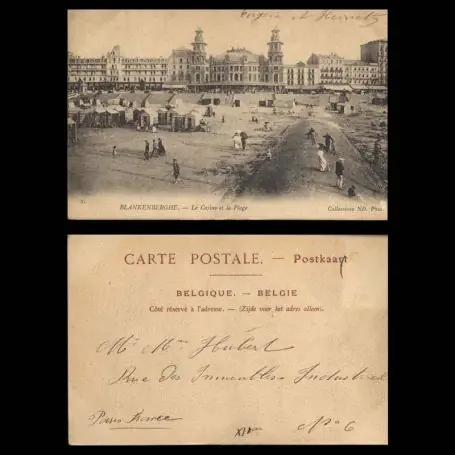 et Henriette
BLANKENBERGHE. — Le Casino et la Plage
Collections ND. Phot.
CARTE POSTALE. — Postkaart
BELGIQUE. — BELGIE
Côté réservé à l'adresse. — (Zijde voor het adres alleen).
Mr Mme Hubert
Rue des Immeubles Industriels
No 6
Paris France
XIème